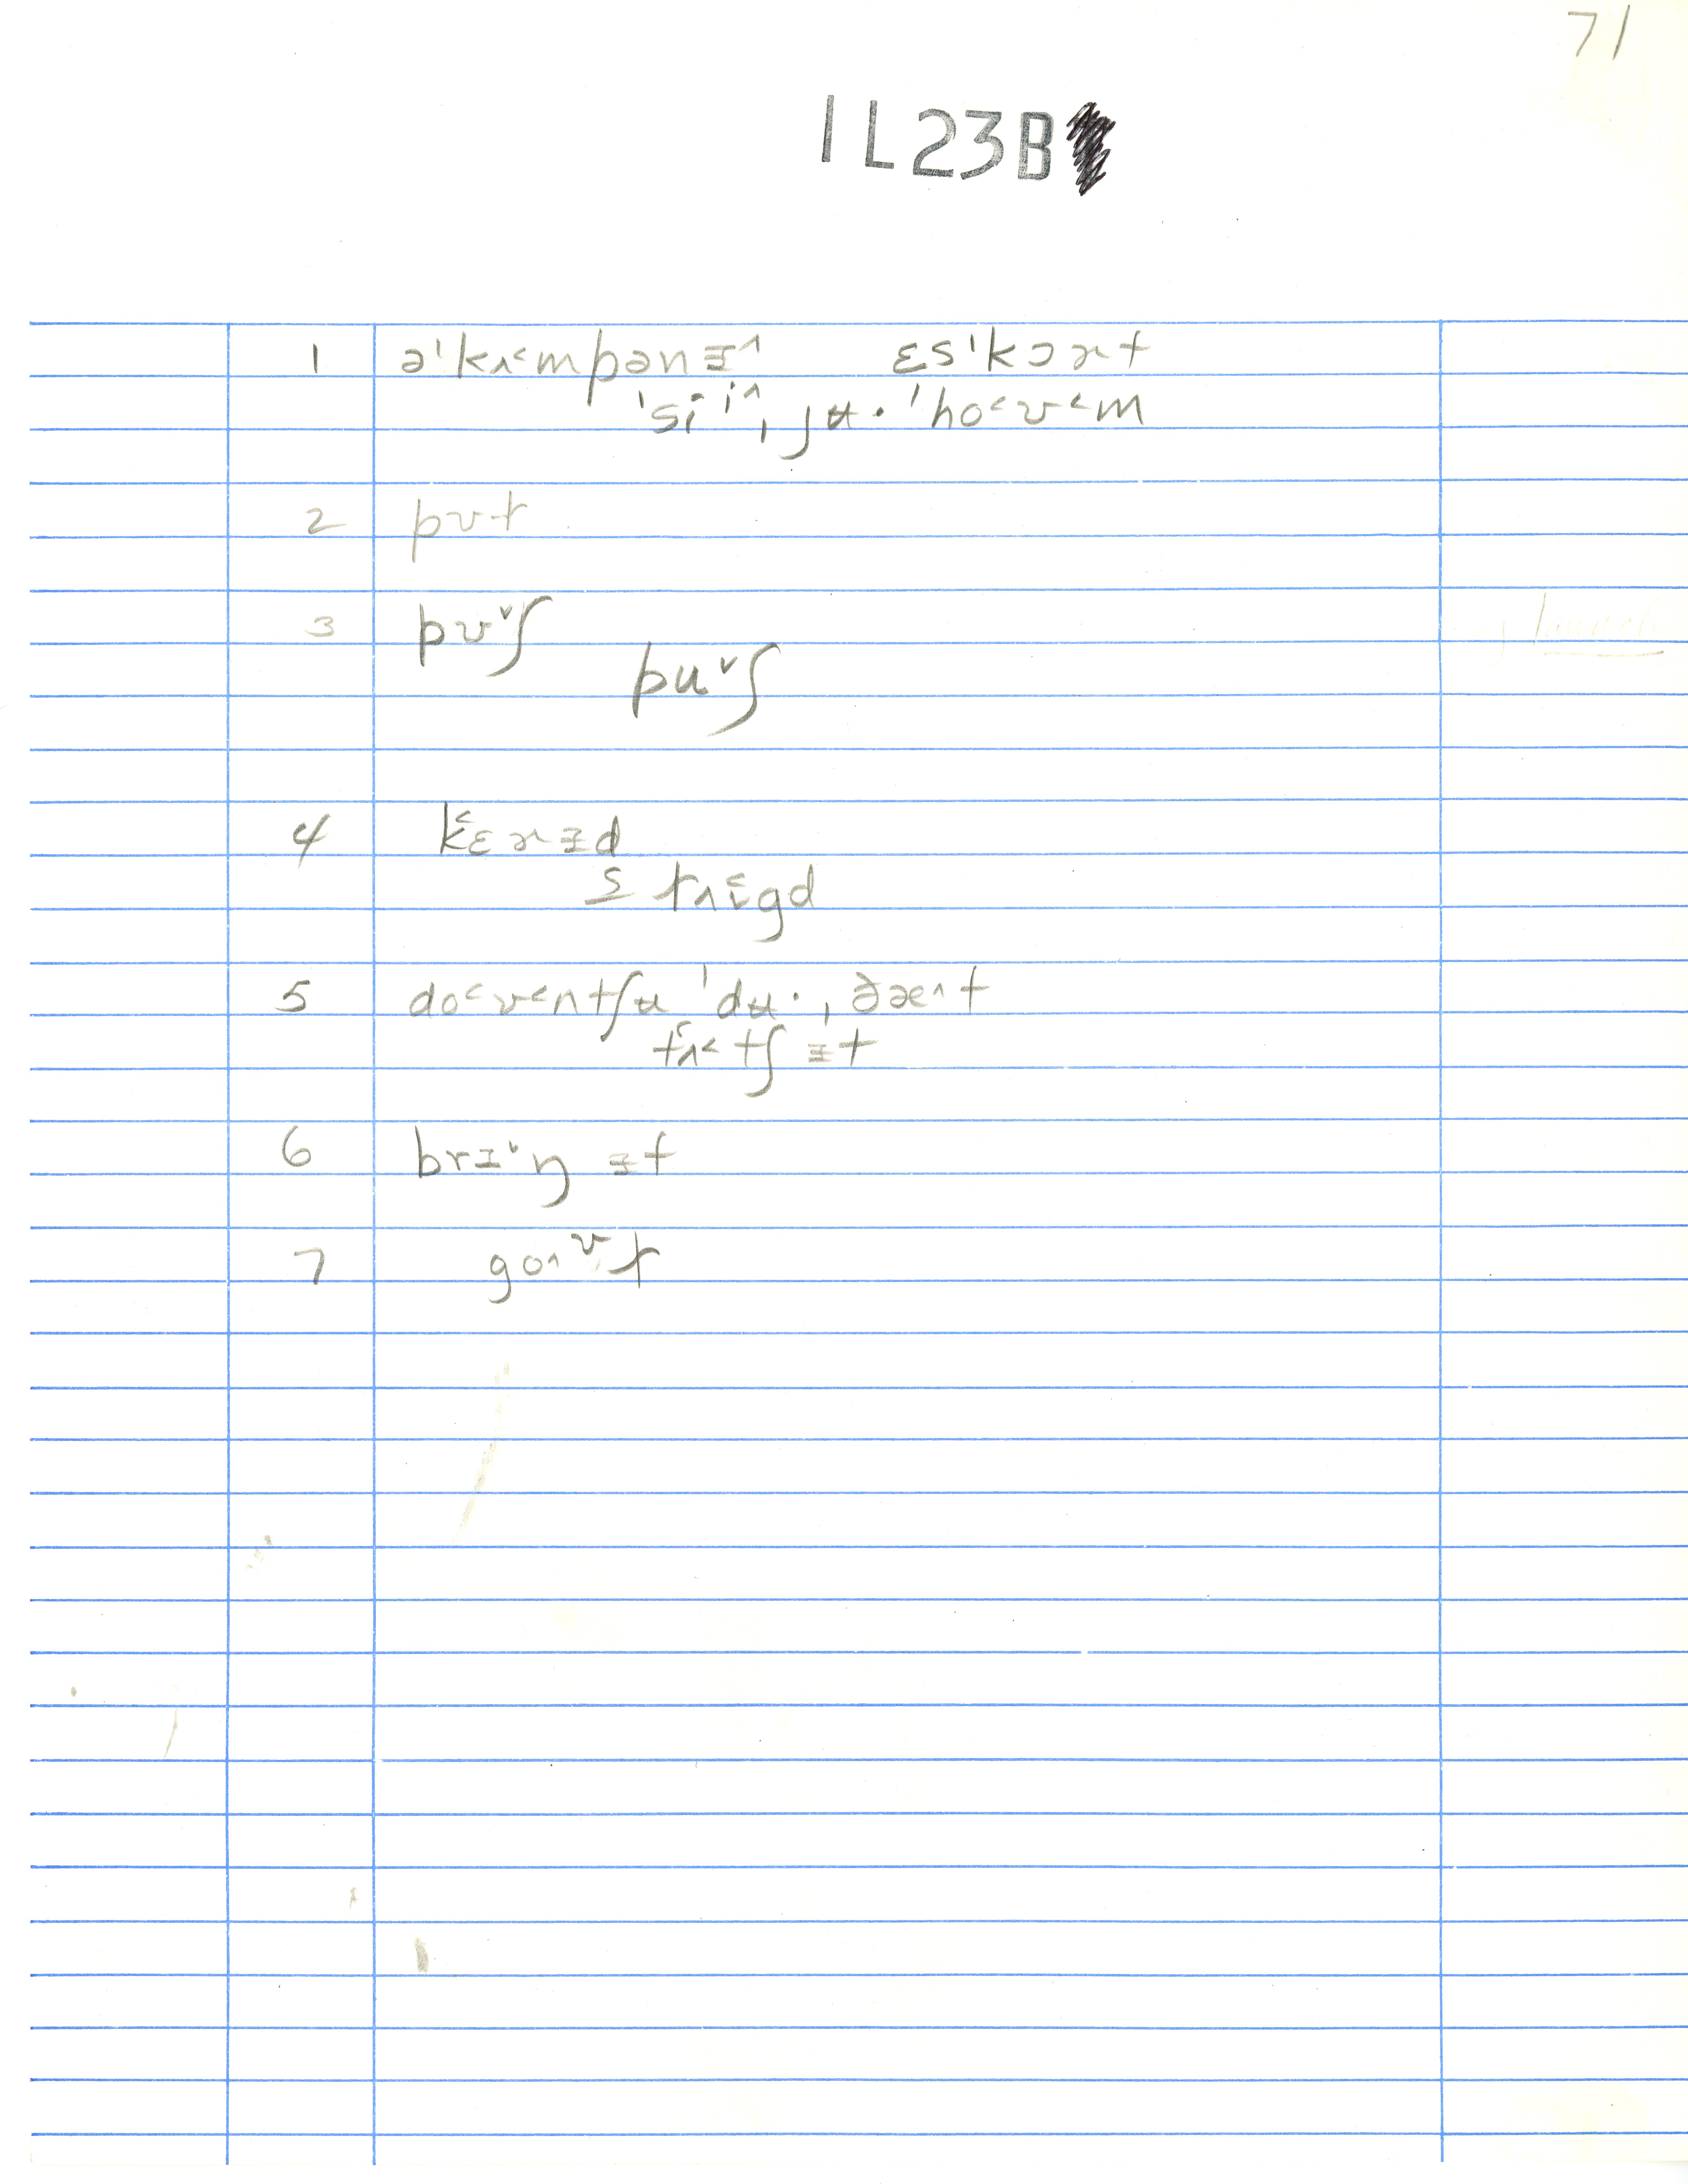 71
1L23B
1 əˈkʌ˂mpənɪ˄ ɛsˈkɔɚt
ˈsiˑi˄ˌjʉˑ ˈho˂ʊ˂m
2 pʊt
3 pʊ˅ʃ
puˇʃ
4 k˂ɛɚɪd
s tʌ˂gd
5 do˂ʊ˂ntʃʉ ˈdʉˑˌðæ˄t
tʌ˂tʃ ɪt
6 brɪ˅ŋ ɪt
7 go˄ʊt